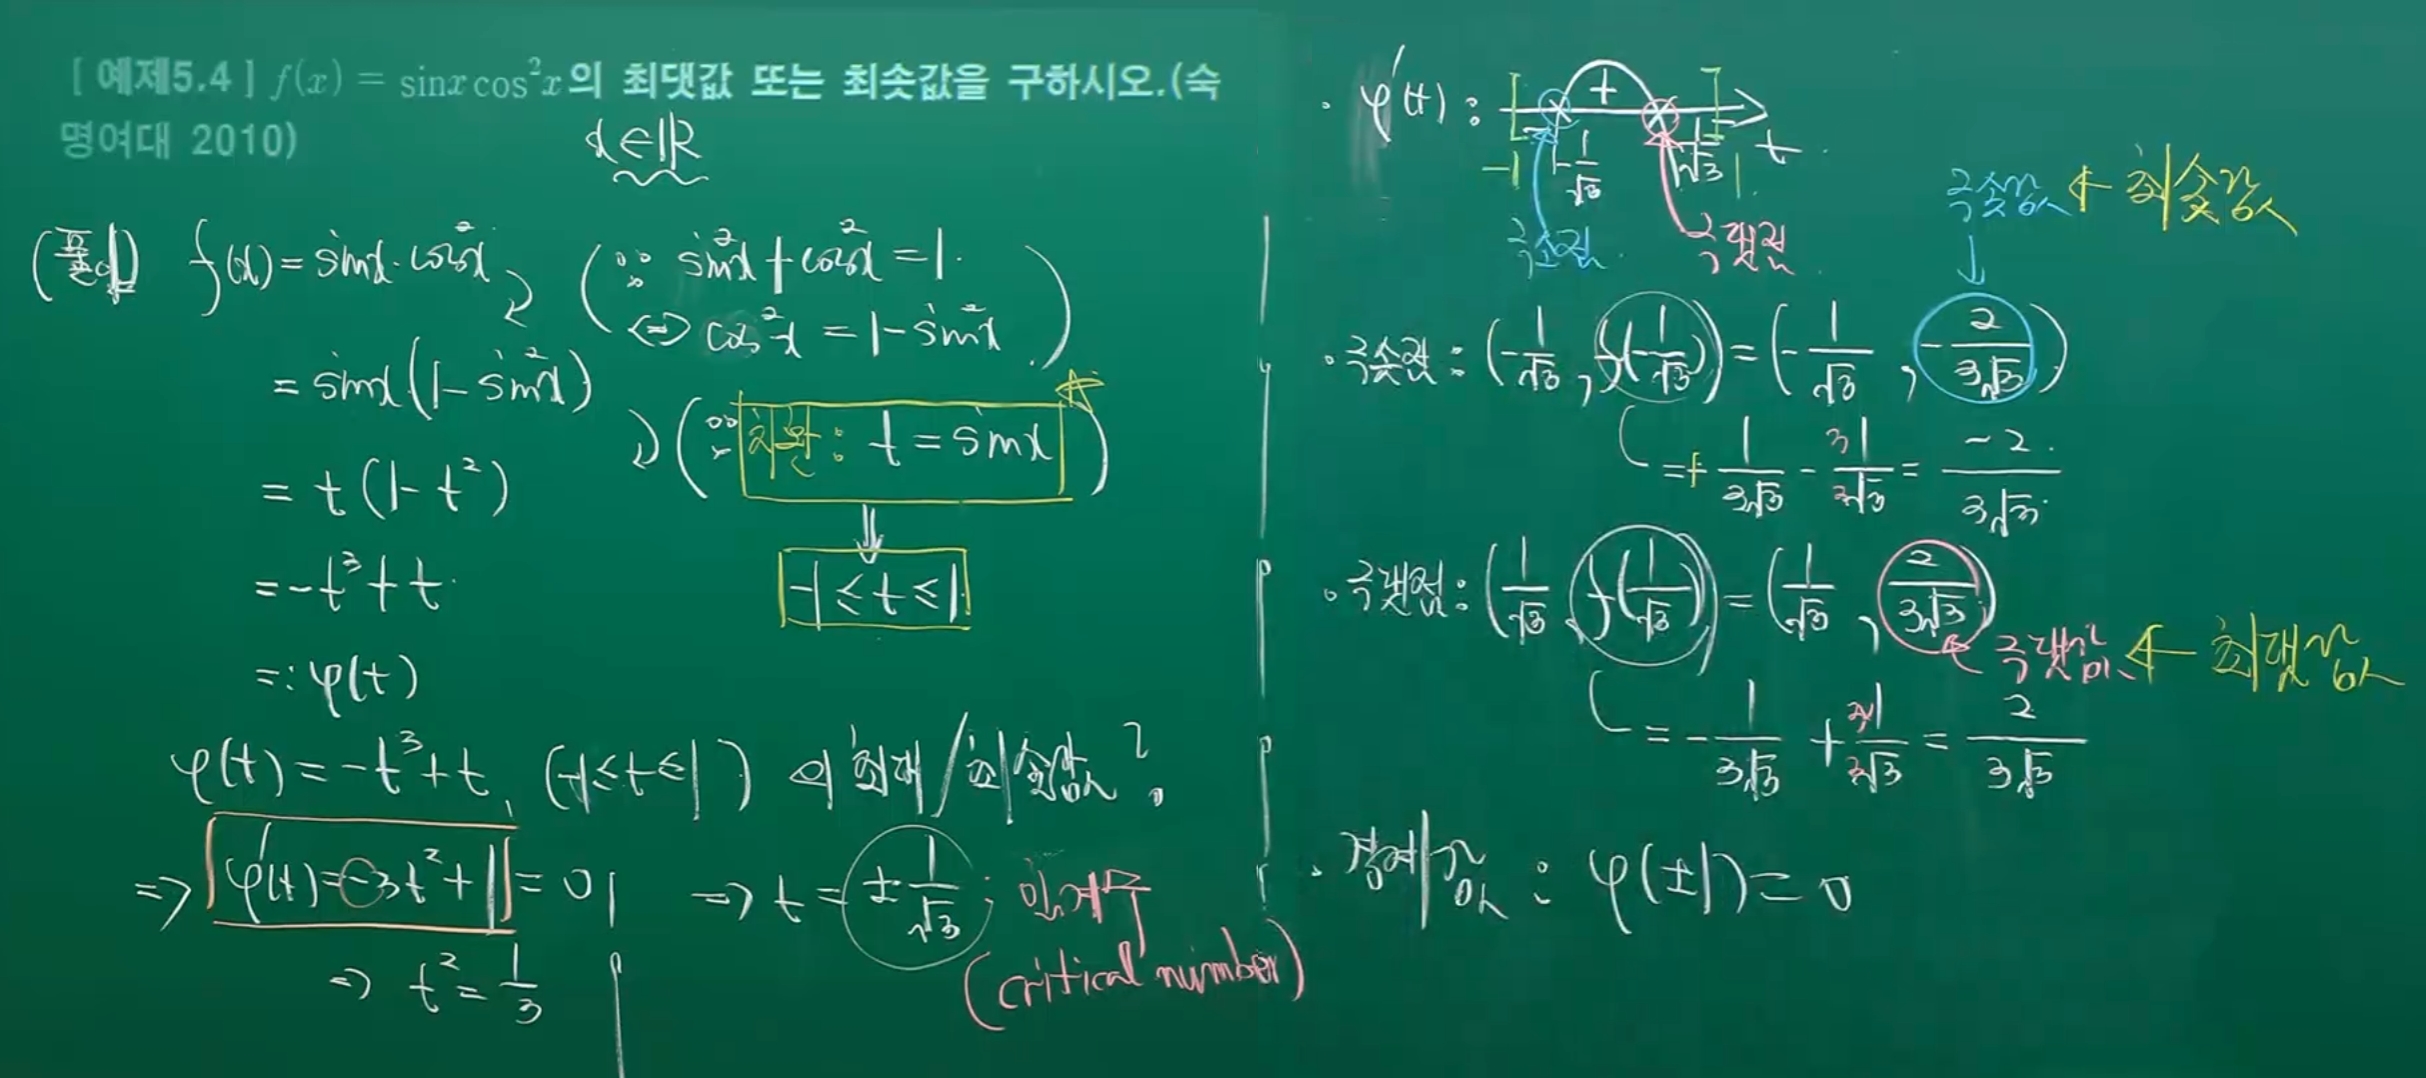 [ 예제5.4 ] f(x) = sinx cos²x의 최댓값 또는 최솟값을 구하시오.(숙
명여대 2010)
x∈ℝ
(풀이) f(x) = sinx·cos²x
(∵ sin²x + cos²x = 1.
⇔ cos²x = 1 - sin²x.)
= sinx(1 - sin²x)
(∵ 치환: t = sinx)
⇓
-1 ≤ t ≤ 1
= t(1 - t²)
= -t³ + t.
=: φ(t)
φ(t) = -t³ + t, (-1 ≤ t ≤ 1) 의 최대/최솟값?
⇒ φ'(t) = -3t² + 1 = 0
⇒ t² = 1/3
⇒ t = ± 1/√3 : 임계수
(critical number)
· φ'(t) : - + - t
-1 -1/√3 1/√3 1
극솟점 극댓점
극솟값 ← 최솟값
· 극솟점 : (-1/√3, f(-1/√3)) = (-1/√3, -2/3√3)
= + 1/3√3 - 3·1/3√3 = -2/3√3
· 극댓점 : (1/√3, f(1/√3)) = (1/√3, 2/3√3)
극댓값 ← 최댓값
= - 1/3√3 + 3·1/3√3 = 2/3√3
· 경계값 : φ(±1) = 0